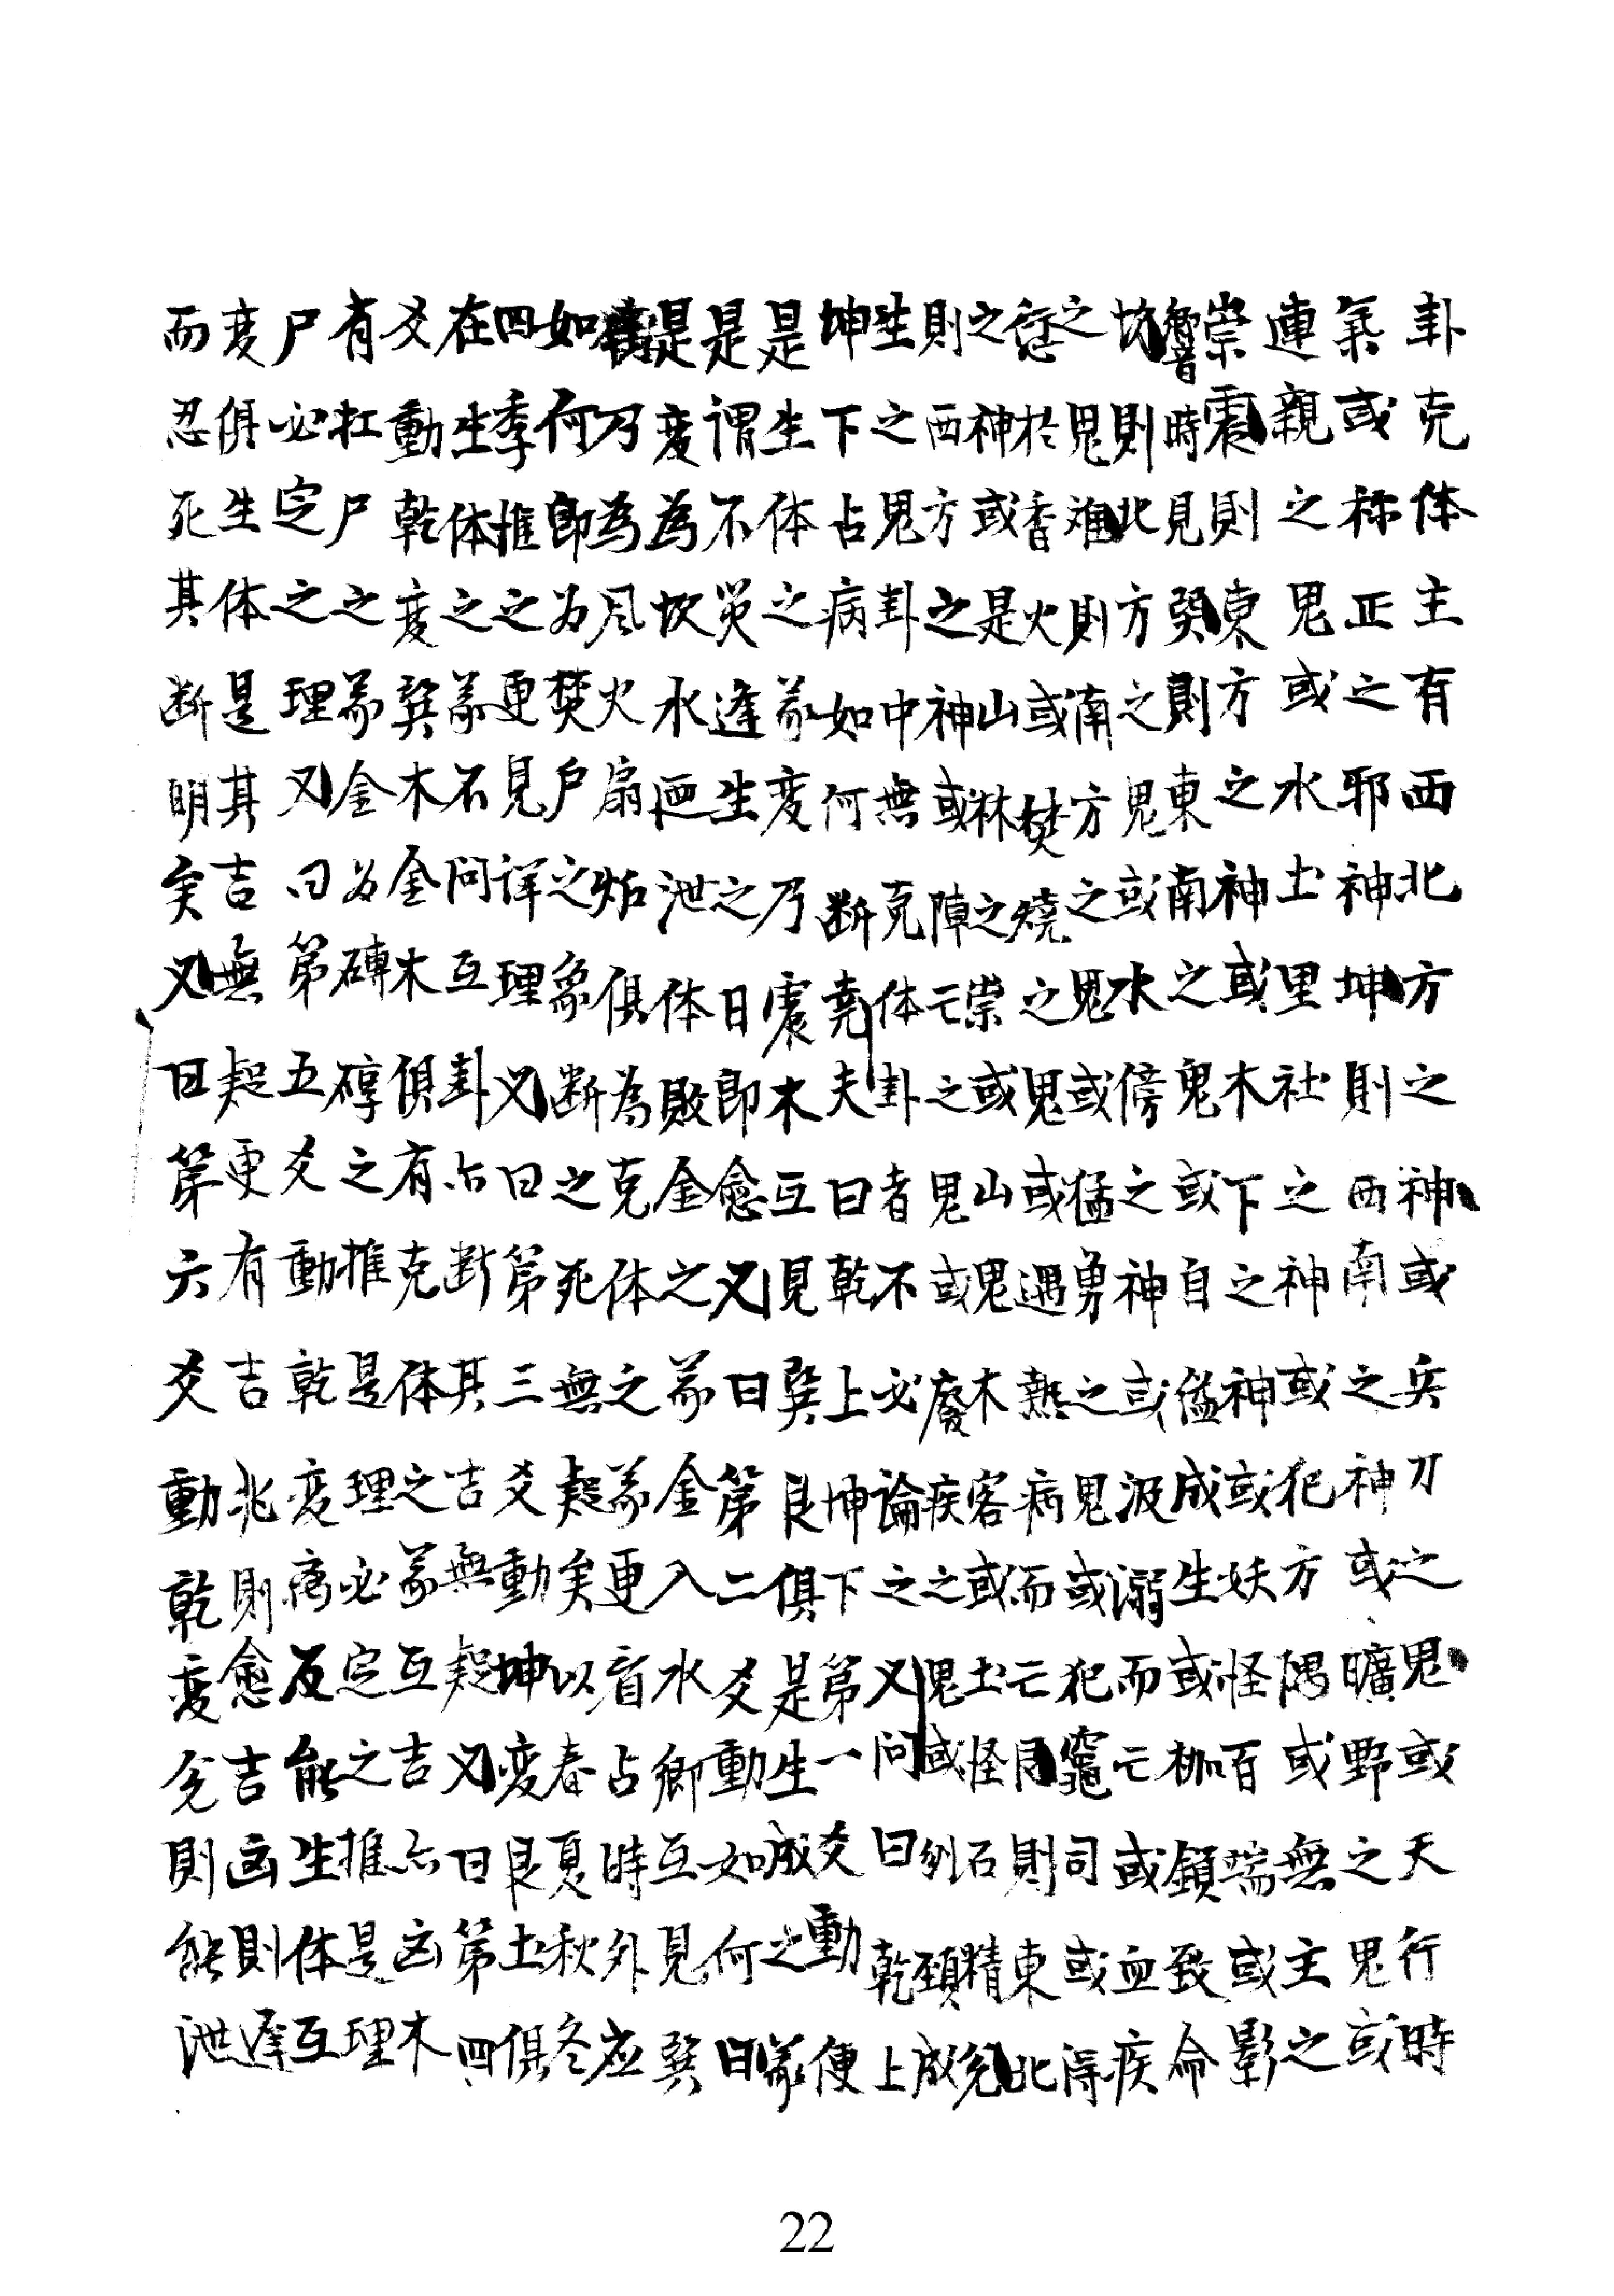 卦克体主有西北方之神或兵刀之鬼或天行時
氣或称正之邪神坤則西南之神或曠野之鬼或
連親之鬼或水土里社之神或犯方隅或無主之
崇震則東方之神或木下之神或妖怪百端或影
響時見巽則東南之鬼或自縊成生或枷鎖致命
坎則北方之鬼或水傍之神或汲溺而亡或血疾
之鬼難則南方之鬼或猛勇之鬼或犯竈司或得
愆於香火或焚燒之鬼或遇熱病而亡同則東北
之神或是山林之崇或山鬼木客或土怪石精兌
則西方之神或陣亡之鬼或廢疾之鬼或刎頸成
生之鬼卦中無克体卦者不必論之又問曰乾上
坤下占病如何断堯夫曰乾上坤下第一爻動便
是生体之義変乃震木互見巽艮俱是生成之義
是謂不災逢生之日即愈又曰第二爻動如何曰
是変為坎水泄体敗金之義金入水鄉互見巽
乃為風火扇炻俱為克体之義更看占時外应
如何即为焚户之象断之死無疑矣以春夏秋冬
四季推之更見详理又曰第三爻動坤変艮土俱
在生体之義不問互卦亦断其吉無疑又曰第四
爻動乾変巽金木俱有克体之義互吉亦凶木
有扛尸之義金为磚碑之推是理必定之推是理
尸必定之理又曰第五爻動乾変离反能生体互
変俱生体是其吉無疑更有吉兆則愈吉凶則遅
而忍死其断明矣又曰第六爻動乾変兌則能泄
22